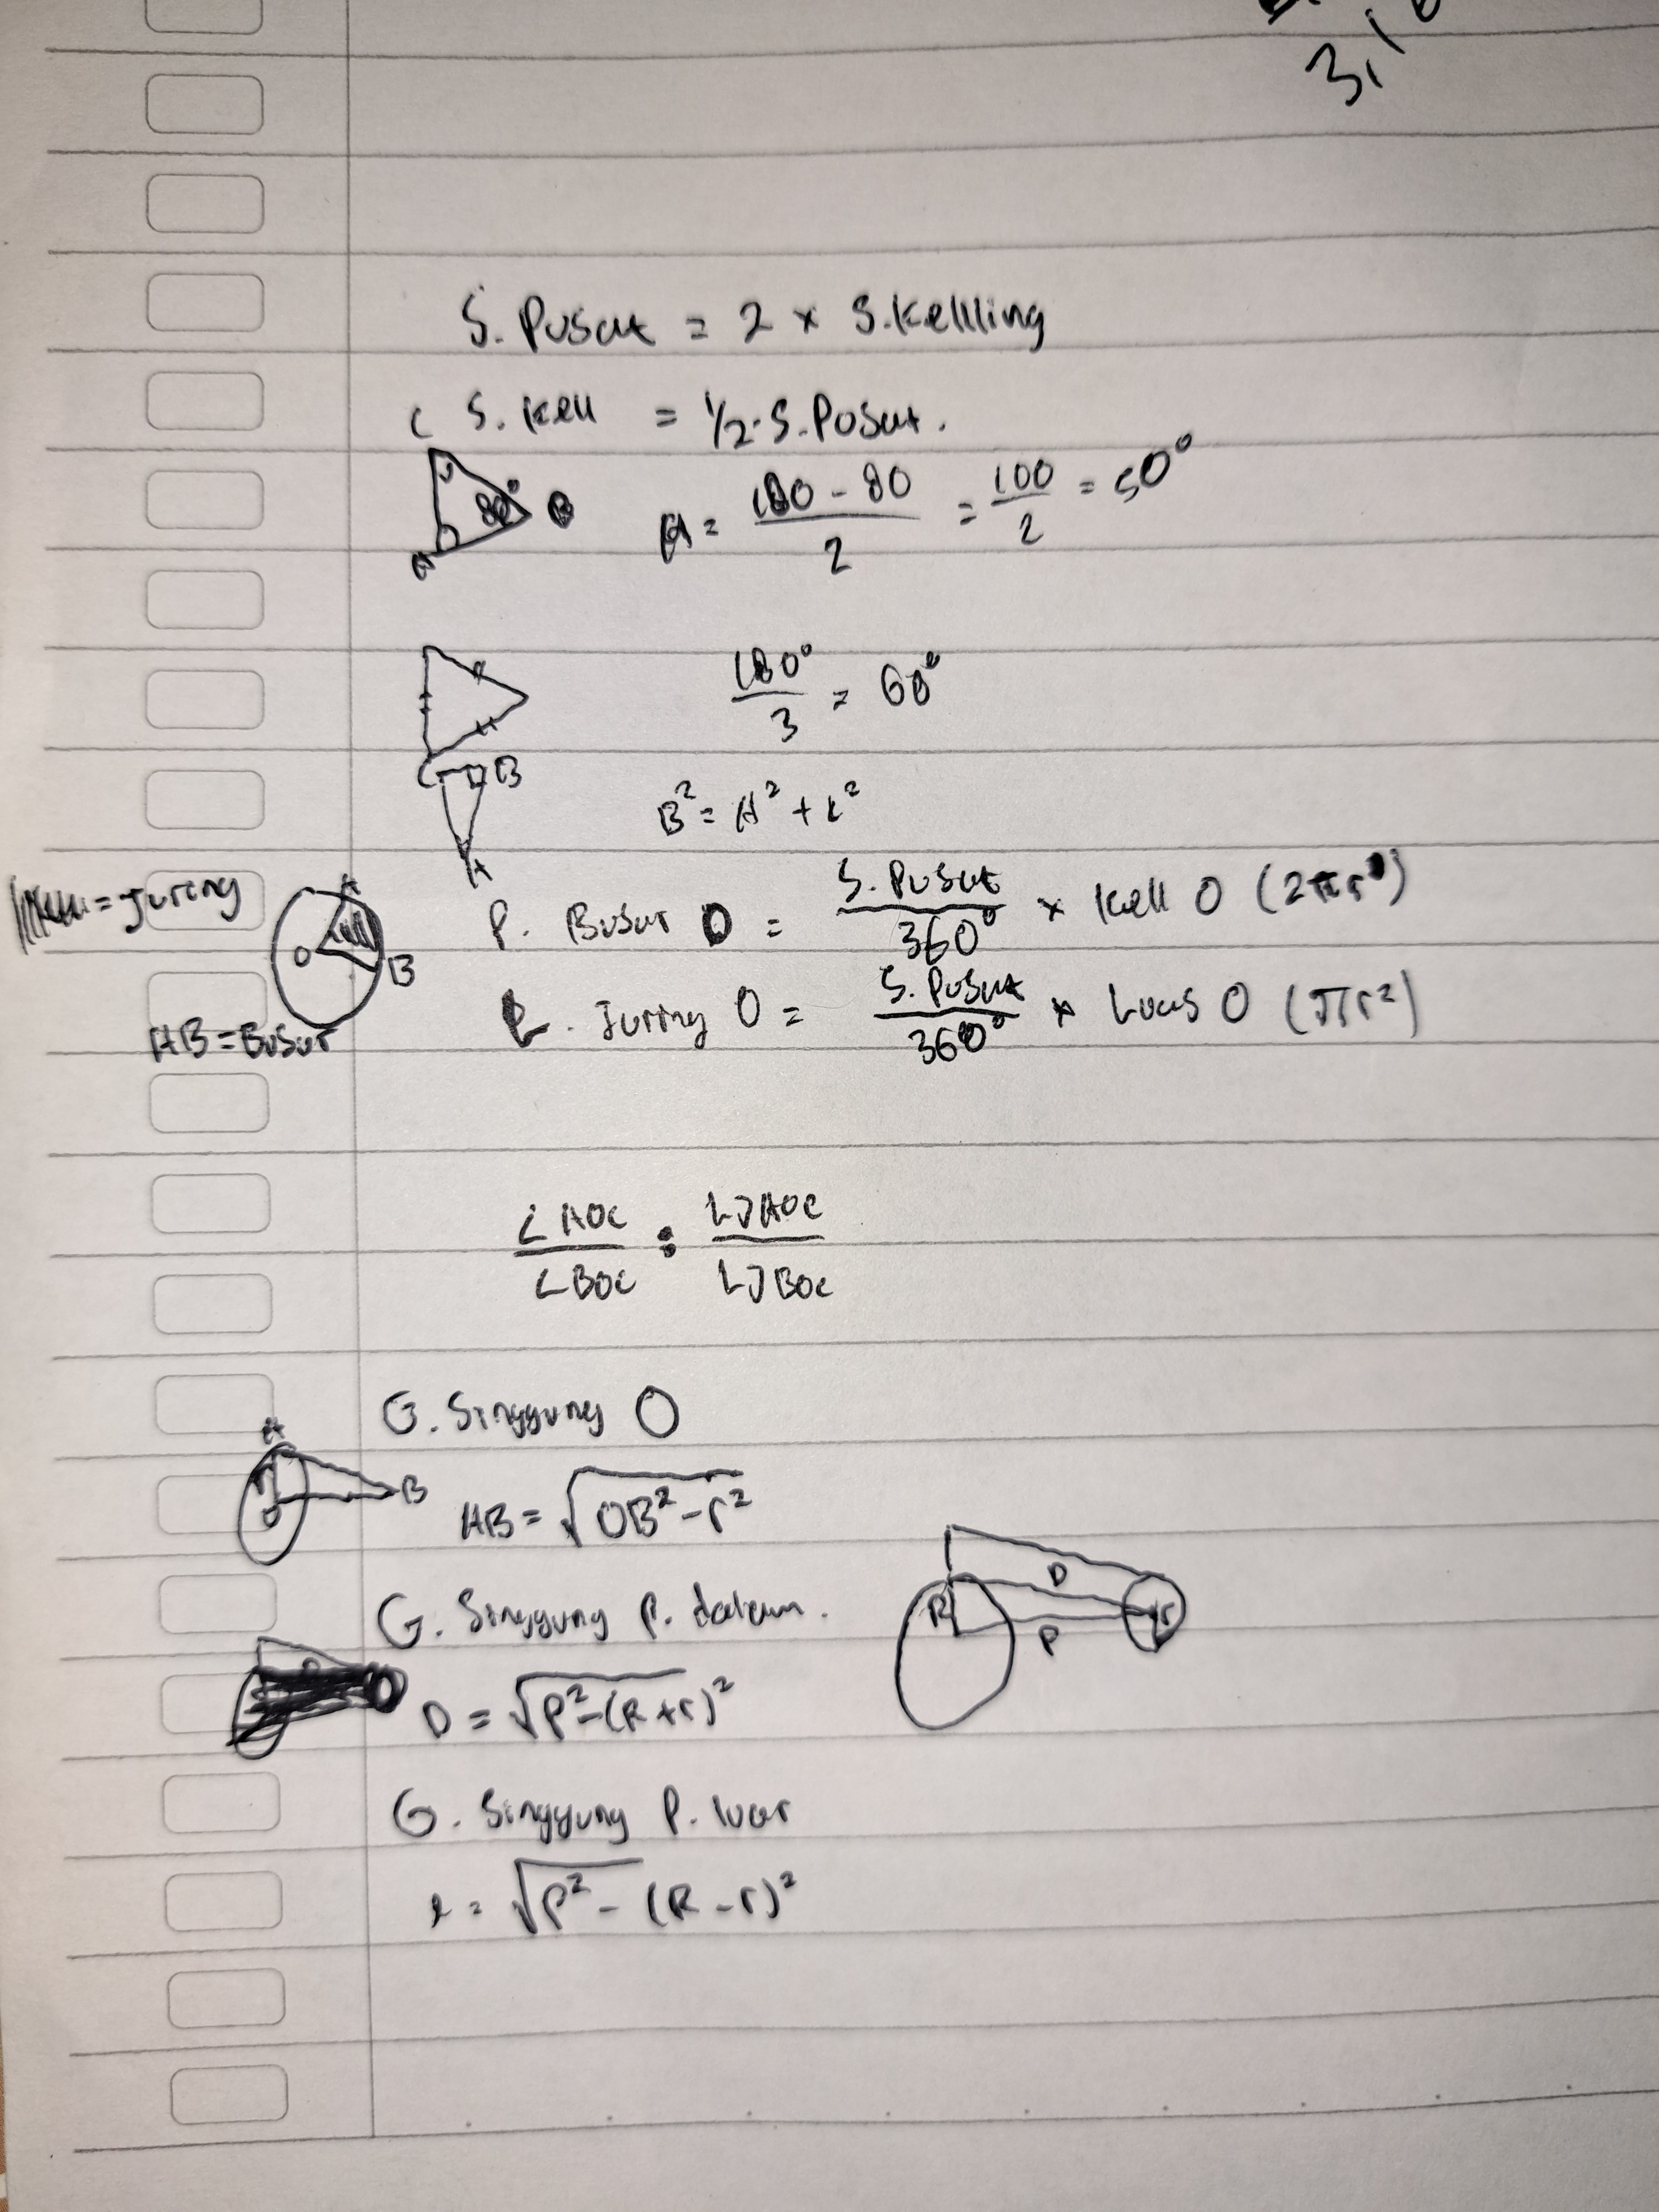 3,1
S. Pusat = 2 x S.Kellling
C S. Kell = 1/2 . S. Pusat.
80° B A = (180 - 80)/2 = 100/2 = 50°
A
180°/3 = 60°
C B
B² = A² + C²
A
= Juring A
O B
AB = Busur
P. Busur O = S. Pusat/360° x Kell O (2πr)
L. Juring O = S. Pusat/360° x Luas O (πr²)
∠AOC/∠BOC = LJAOC/LJBOC
G. Singgung O
A
O B AB = √OB² - r²
G. Singgung P. dalam.
R D P r
D = √P² - (R + r)²
G. Singgung P. luar
l = √P² - (R - r)²